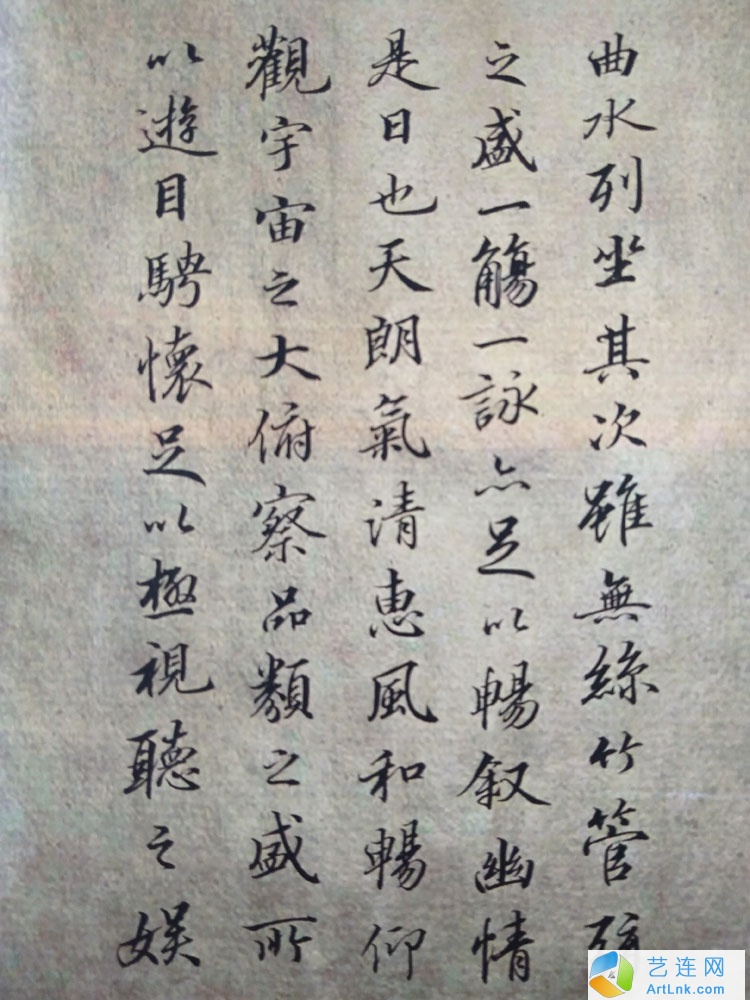 曲水列坐其次雖無絲竹管
之盛一觴一詠亦足以暢叙幽情
是日也天朗氣清惠風和暢仰
觀宇宙之大俯察品類之盛所
以遊目騁懷足以極視聽之娱
艺连网
ArtLnk.com